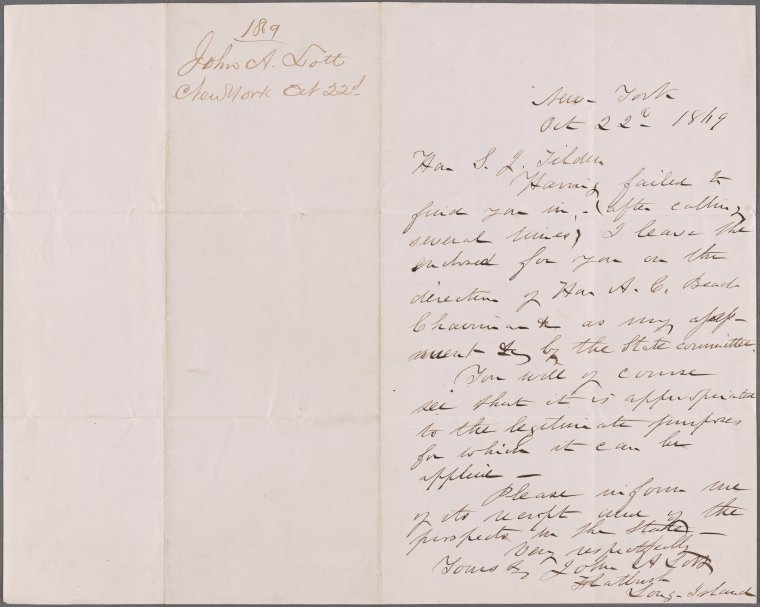 1869
John A. Lott
New York Oct 22d
New-York
Oct 22d 1869
Hon S. J. Tilden
Having failed to
find you in, (after calling
several times) I leave the
enclosed for you on the
direction of Hon A. C. Beach
Chairman & as my assess-
ment by the State committee.
You will of course
see that it is appropriated
to the legitimate purposes
for which it can be
applied —
Please inform me
of its receipt and of the
prospects in the State —
Very respectfully
Yours &c John A Lott
Flatbush
Long-Island